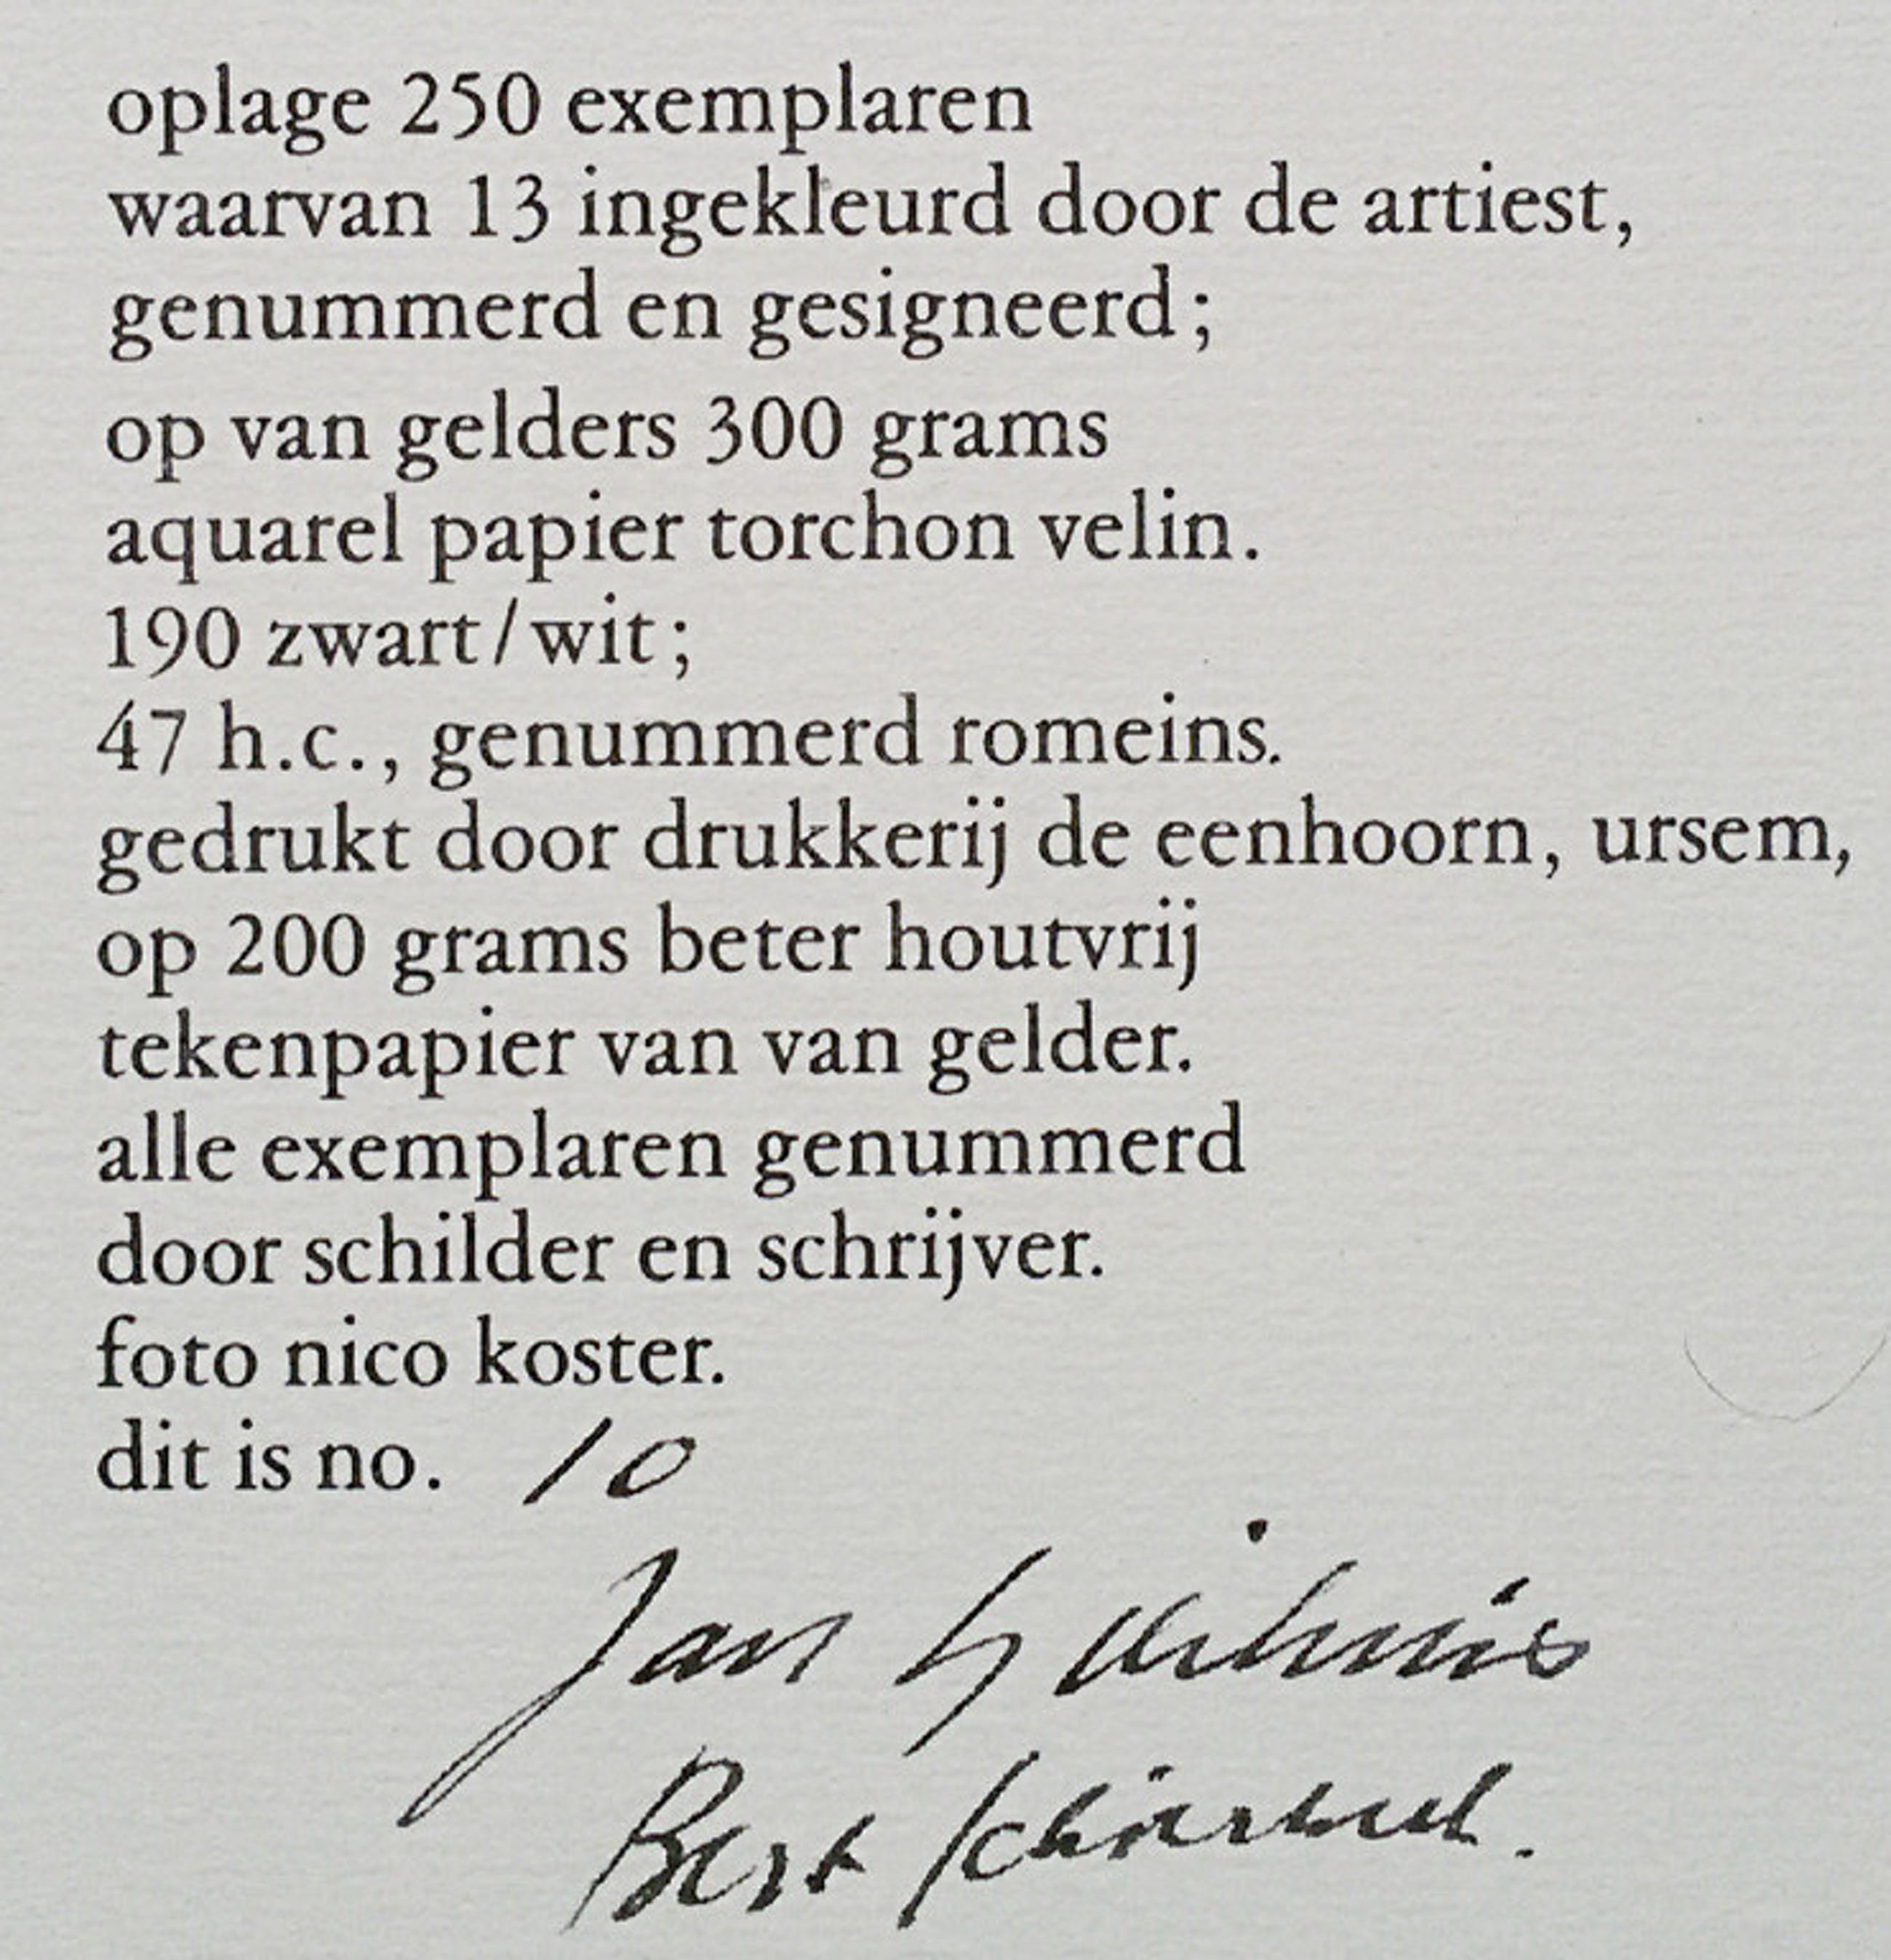 oplage 250 exemplaren
waarvan 13 ingekleurd door de artiest,
genummerd en gesigneerd;
op van gelders 300 grams
aquarel papier torchon velin.
190 zwart/wit;
47 h.c., genummerd romeins.
gedrukt door drukkerij de eenhoorn, ursem,
op 200 grams beter houtvrij
tekenpapier van van gelder.
alle exemplaren genummerd
door schilder en schrijver.
foto nico koster.
dit is no. 10
Jan
Bert Schierbeek.